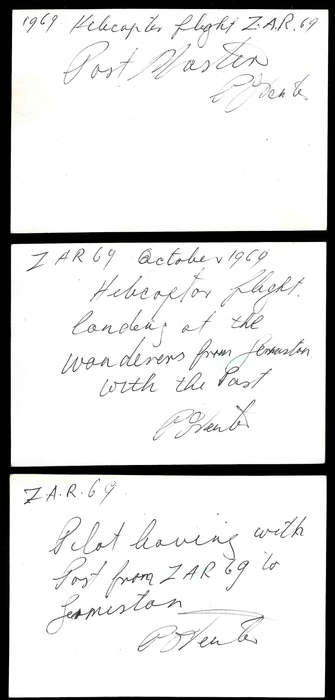 1969 Helicopter flight Z.A.R. 69
Post Master
P J Venter
ZAR 69 October 1969
Helicoptor flight.
landing at the
wanderers from Germiston
with the Post
P J Venter
Z.A.R. 69.
Pilot leaving with
Post from ZAR 69 to
Germiston
P J Venter